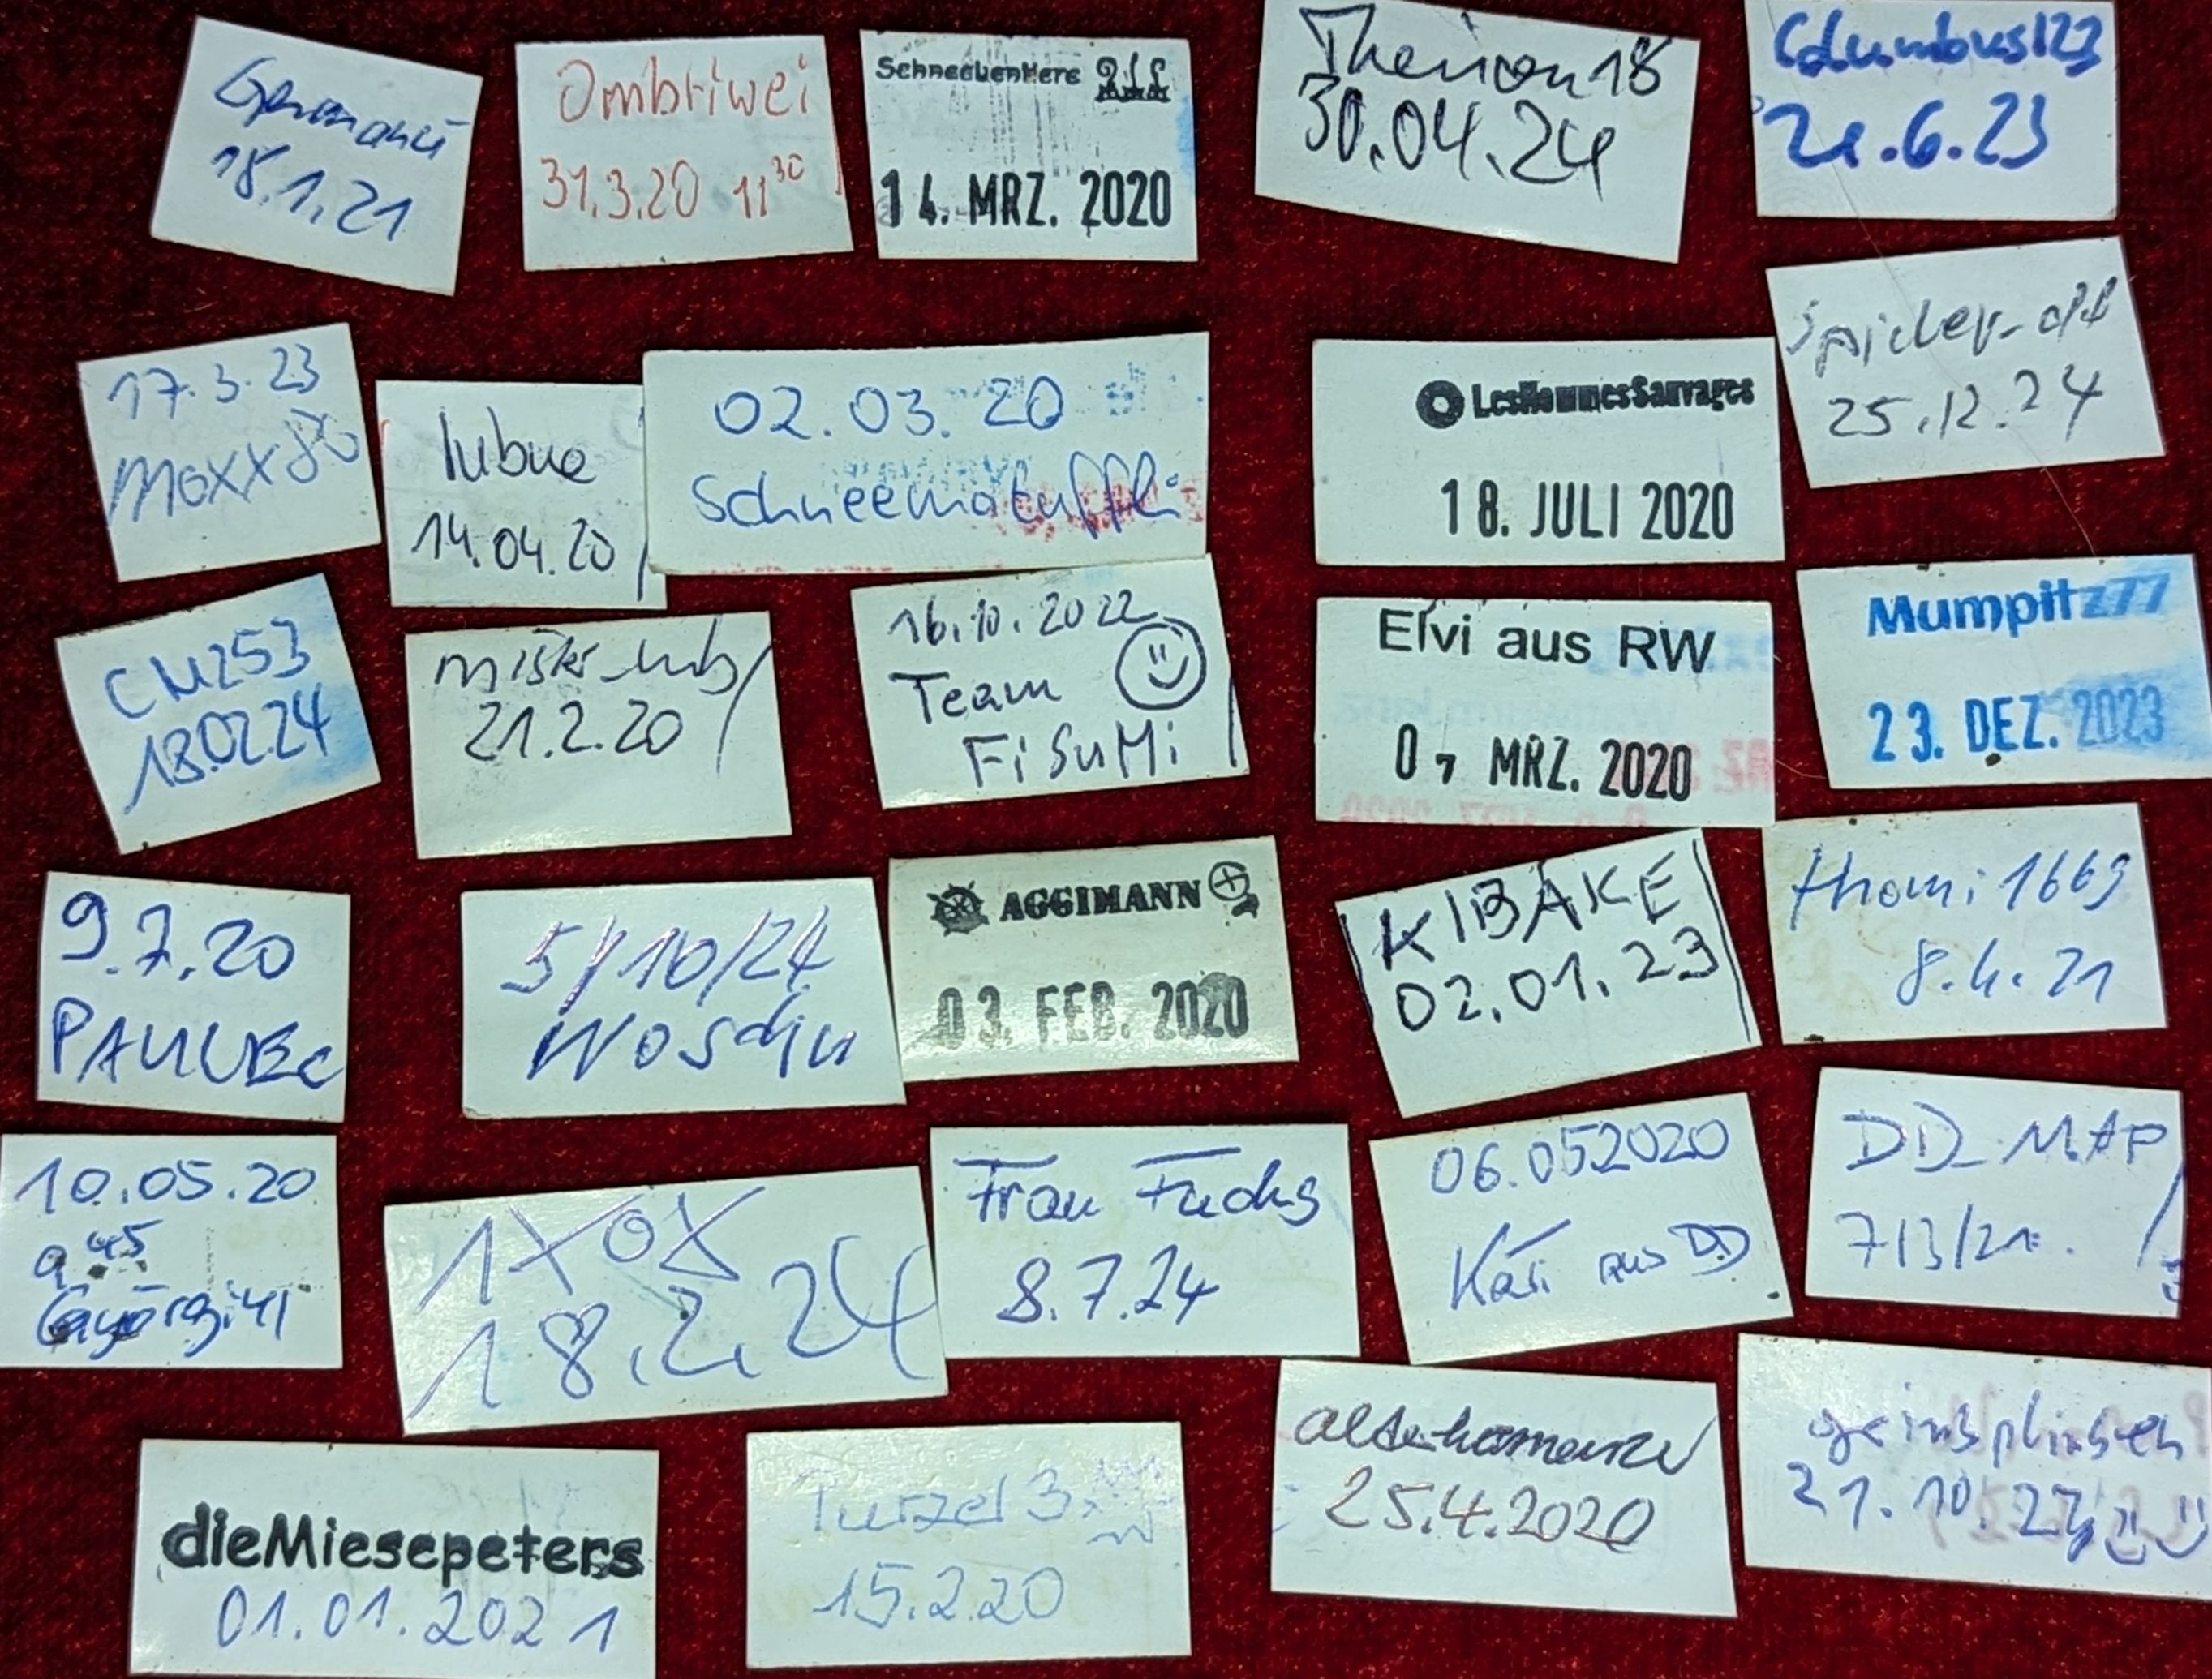 18.1.21
Ombriwei
31.3.20 11³⁰
14. MRZ. 2020
Therion18
30.04.24
Columbus123
21.6.23
17.3.23
Moxx80
lubue
14.04.20
02.03.20
LesHommesSauvages
18. JULI 2020
25.12.24
CW253
18.02.24
21.2.20
16.10.2022
Team
FiSuMi
Elvi aus RW
MRZ. 2020
Mumpitz77
23. DEZ. 2023
9.7.20
5/10/24
AGGIMANN
03. FEB. 2020
KIBAKE
02.01.23
thomi1669
8.4.21
10.05.20
9⁴⁵
18.2.24
Frau Fuchs
8.7.24
06.052020
Kati aus DD
DD_MAP
7/3/21.
dieMiesepeters
01.01.2021
Purzel
15.2.20
25.4.2020
geinsplinsen